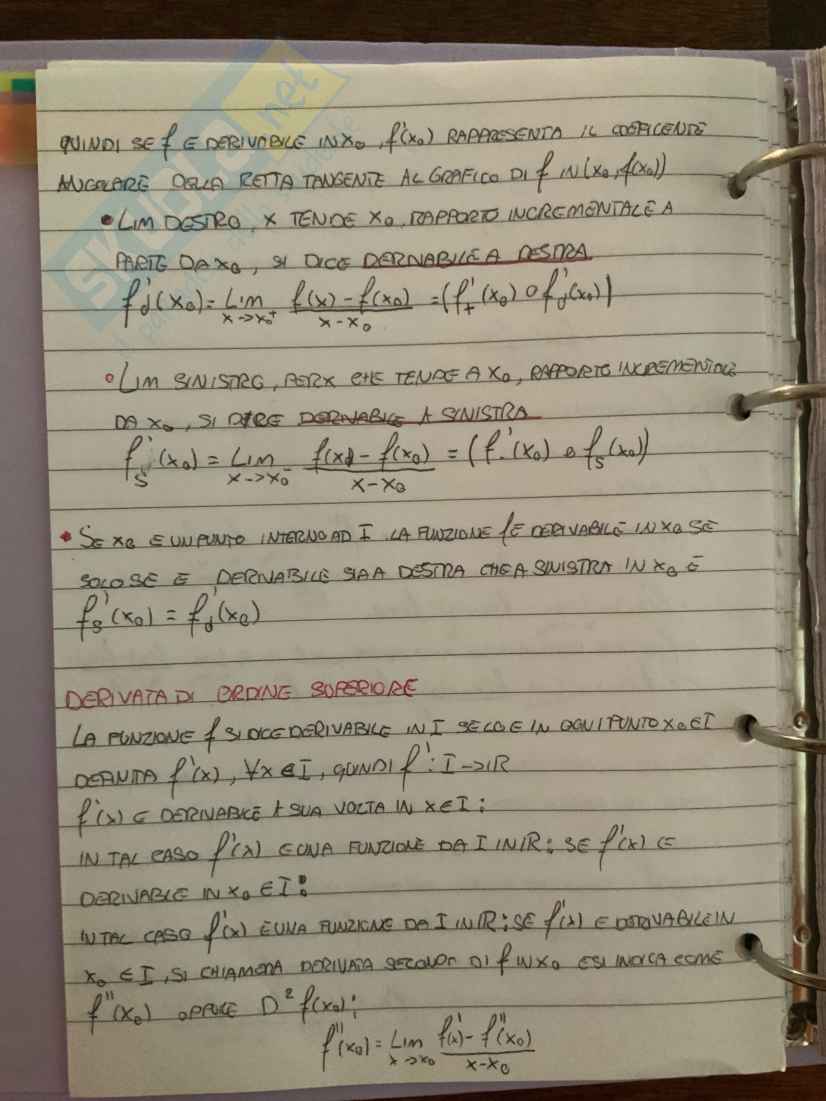 SKUOLA.net
QUINDI SE f E DERIVABILE IN x₀, f'(x₀) RAPPRESENTA IL COEFICENTE
ANGOLARE DELLA RETTA TANGENTE AL GRAFICO DI f IN (x₀, f(x₀))
• LIM DESTRO, X TENDE X₀, RAPPORTO INCREMENTALE A
PARTE DA X₀, SI DICE DERIVABILE A DESTRA
f'd(x₀) = Lim x->x₀⁺ f(x) - f(x₀) / x - x₀ = (f'₊(x₀) o f'd(x₀))
° LIM SINISTRO, PER X CHE TENDE A X₀, RAPPORTO INCREMENTALE
DA X₀, SI DICE DERIVABILE A SINISTRA
f's(x₀) = Lim x->x₀⁻ f(x) - f(x₀) / x - x₀ = (f₋'(x₀) o fs(x₀))
• SE X₀ E UN PUNTO INTERNO AD I LA FUNZIONE f E DERIVABILE IN X₀ SE
SOLO SE E DERIVABILE SIA A DESTRA CHE A SINISTRA IN X₀ E
f's(x₀) = f'd(x₀)
DERIVATA DI ORDINE SUPERIORE
LA FUNZIONE f SI DICE DERIVABILE IN I SE LO E IN OGNI PUNTO X₀ ∈ I
DEFINITA f'(x), ∀x ∈ I, QUINDI f': I -> IR
f'(x) E DERIVABILE A SUA VOLTA IN X ∈ I:
IN TAL CASO f'(x) E UNA FUNZIONE DA I IN IR; SE f'(x) E
DERIVABLE IN X₀ ∈ I:
IN TAL CASO f'(x) E UNA FUNZIONE DA I IN IR; SE f'(x) E DERIVABILE IN
X₀ ∈ I, SI CHIAMERA DERIVATA SECONDA DI f IN X₀ E SI INDICA COME
f''(x₀) OPPURE D² f(x₀):
f''(x₀) = Lim x->x₀ f'(x) - f''(x₀) / x - x₀